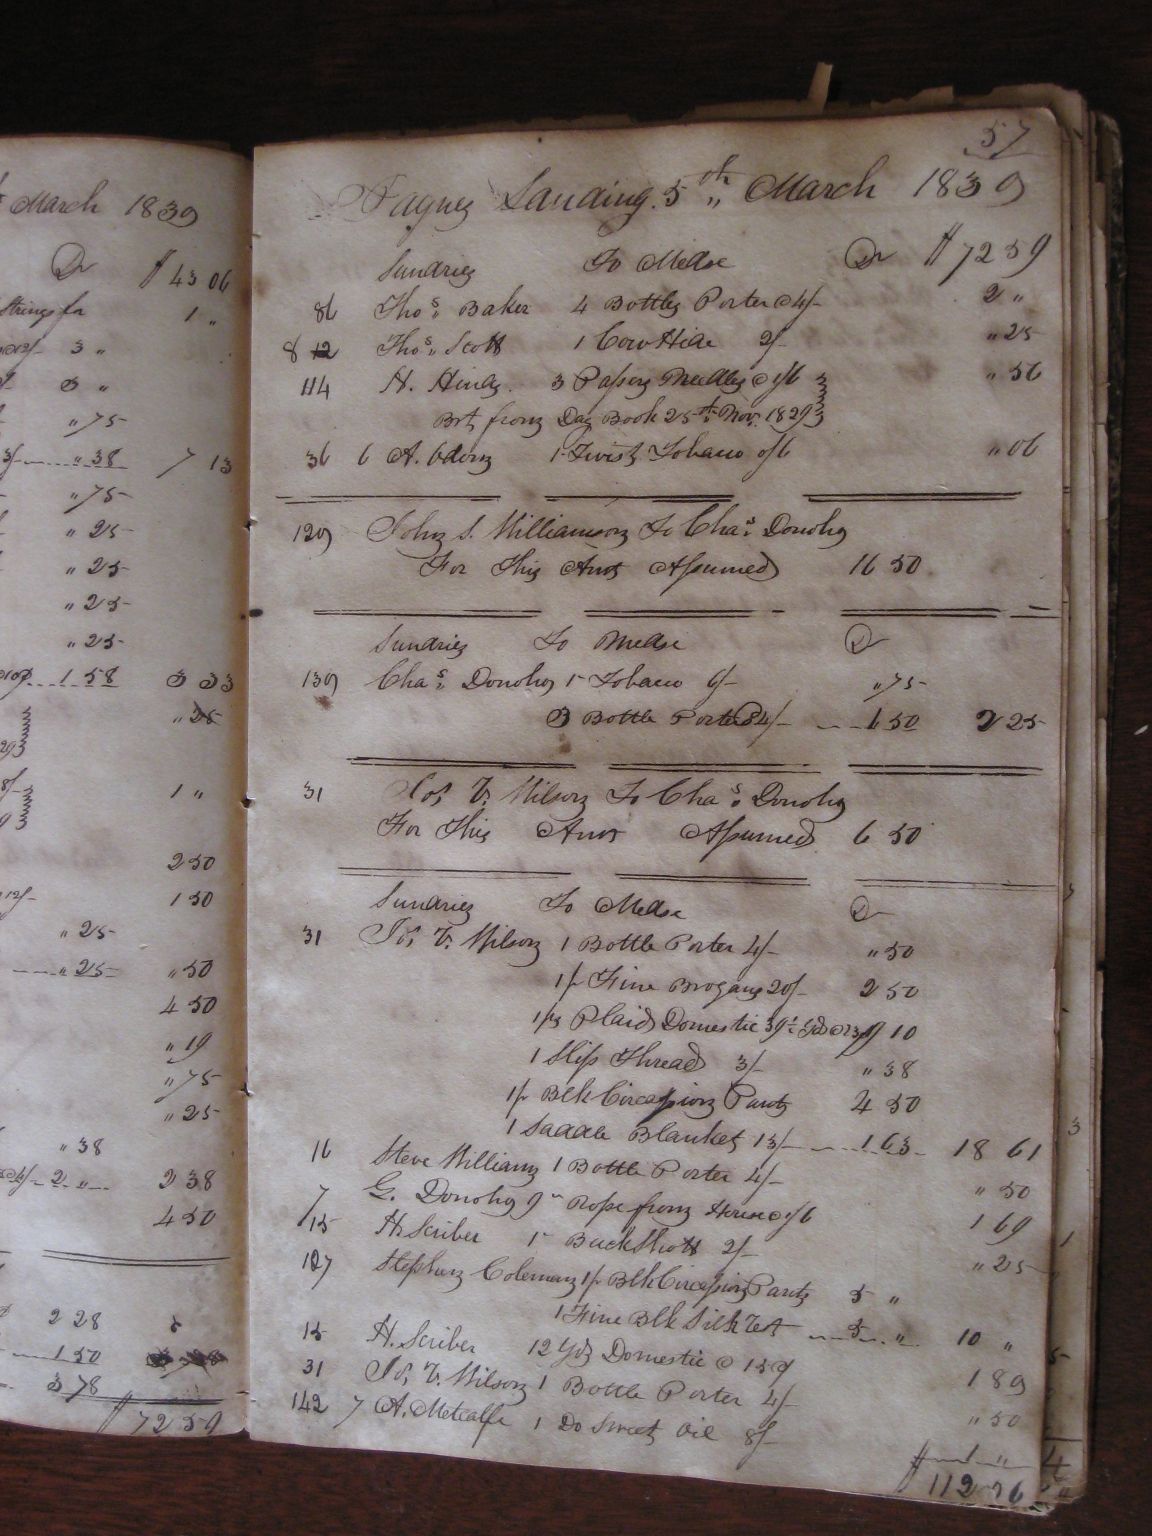 March 1839
Dr $ 43 06
Strings for 1 "
3 "
3 "
" 75
3/- " 38 7 13
" 75
" 25
" 25
" 25
" 25
1 58 3 33
" 25
1 "
2 50
12/- 1 50
" 25
" 25 " 50
4 50
" 19
" 75
" 25
" 38
2 " 2 38
4 50
2 28
1 50
3 78
$ 72 59
57
Landing. 5th March 1839
Sundries To Mdse Dr $ 72 59
86 Thos. Baker 4 Bottles Porter @ 4/- 2 "
8 12 Thos. Scott 1 Cow Hide 2/- " 25
114 H. Hinds. 3 Papers Needles @ 1/6 " 56
Brt from Day Book 25th Nov. 1829
36 6 A. Odom 1 Twist Tobacco 0/6 " 06
129 John S. Williamson To Chas. Donoho
For This Amt Assumed 16 50
Sundries To Mdse Dr
139 Chas. Donoho 1 Tobacco 6/- " 75
3 Bottle Porter @ 4/- 1 50 2 25
31 Jos V. Wilson To Chas. Donoho
For This Amt Assumed 6 50
Sundries To Mdse Dr
31 Jos V. Wilson 1 Bottle Porter 4/- " 50
1 pr Fine Brogans 20/- 2 50
1 ps Plaid Domestic 9 10
1 Slip Thread 3/- " 38
1 pr Blk Circassion Pants 4 50
1 Saddle Blanket 13/- 1 63 18 61
16 Steve Williams 1 Bottle Porter 4/- " 50
7 G. Donoho 9 " Rope from House @ 1/6 1 69
15 H. Scriber 1 " Buck Shott 2/- " 25
127 Stephen Coleman 1 pr Blk Circassion Pants 5 "
1 Fine Blk Silk Vest 5 " 10 "
15 H. Scriber 12 Yds Domestic @ 1 89
31 Jos V. Wilson 1 Bottle Porter 4/- " 50
142 7 A. Metcalfe 1 Do Sweet Oil 8/- 1 "
$ 112 76